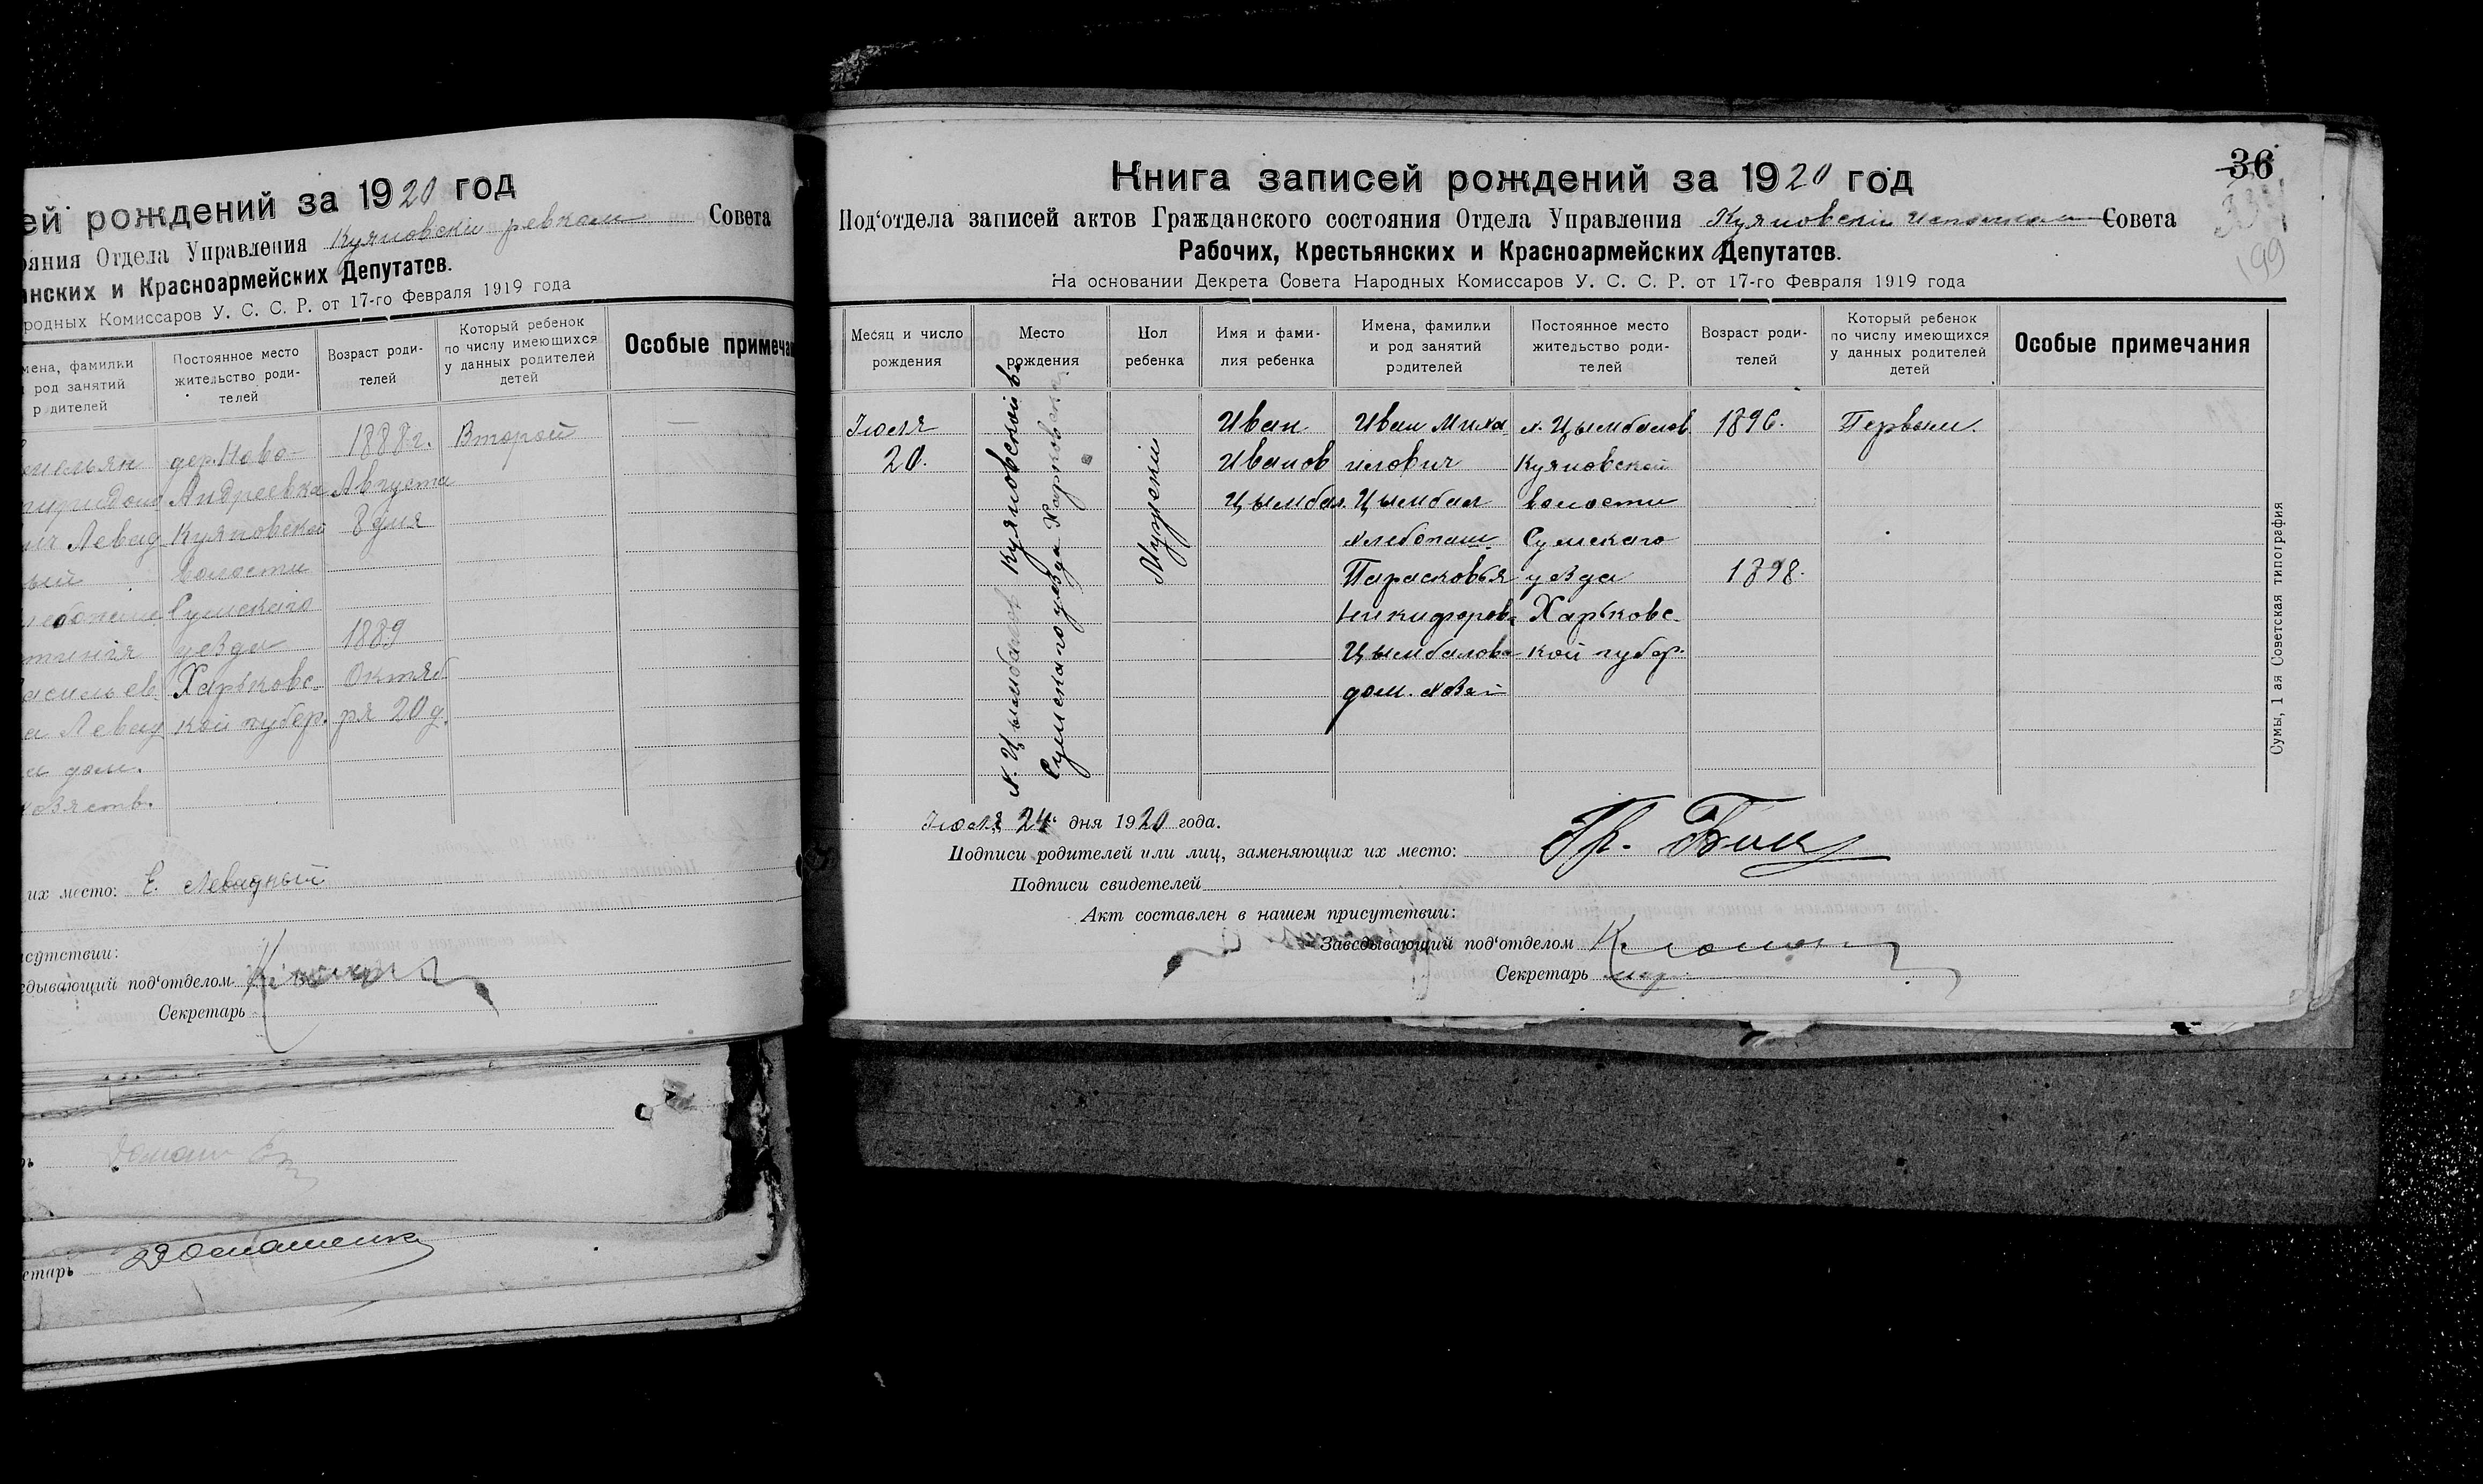 ей рождений за 1920 год
ояния Отдела Управления Куяновскiй ревком Совета
нских и Красноармейских Депутатов.
родных Комиссаров У. С. С. Р. от 17-го Февраля 1919 года
мена, фамилии
род занятий
р дителей
Постоянное место
жительство роди-
телей
Возраст роди-
телей
Который ребенок
по числу имеющихся
у данных родителей
детей
Особые примеча
дер. Ново-
Андреевка
Куяновской
волости
Сумскаго
уѣзда
Харьковс-
кой губер.
1888 г.
Августа
8 дня
1889
Октяб
ря 20 д.
Второй
дом.
хозяств.
их место: Е. Левадный
сутствии:
едывающий под‘отделом
Секретарь
етарь
36
199
Книга записей рождений за 1920 год
Под‘отдела записей актов Гражданского состояния Отдела Управления Куяновскiй исполком Совета
Рабочих, Крестьянских и Красноармейских Депутатов.
На основании Декрета Совета Народных Комиссаров У. С. С. Р. от 17-го Февраля 1919 года
Месяц и число
рождения
Место
рождения
Пол
ребенка
Имя и фами-
лия ребенка
Имена, фамилии
и род занятий
родителей
Постоянное место
жительство роди-
телей
Возраст роди-
телей
Который ребенок
по числу имеющихся
у данных родителей
детей
Особые примечания
Июля
20.
х. Цымбалов Куяновской в.
Сумскаго уѣзда Харковск
Мужскiй
Иван
Иванов
Цымбал.
Иван Миха
илович
Цымбал
хлебопаш.
Парасковья
Никифоров.
Цымбалова
дом. хозяй
х. Цымбалов
Куяновской
волости
Сумскаго
уѣзда
Харьковс-
кой губер.
1896.
1898.
Первый.
Июля 24 дня 1920 года.
Подписи родителей или лиц, заменяющих их место:
Подписи свидетелей
Акт составлен в нашем присутствии:
Заведывающий под‘отделом
Секретарь
Сумы, 1 ая Советская типография